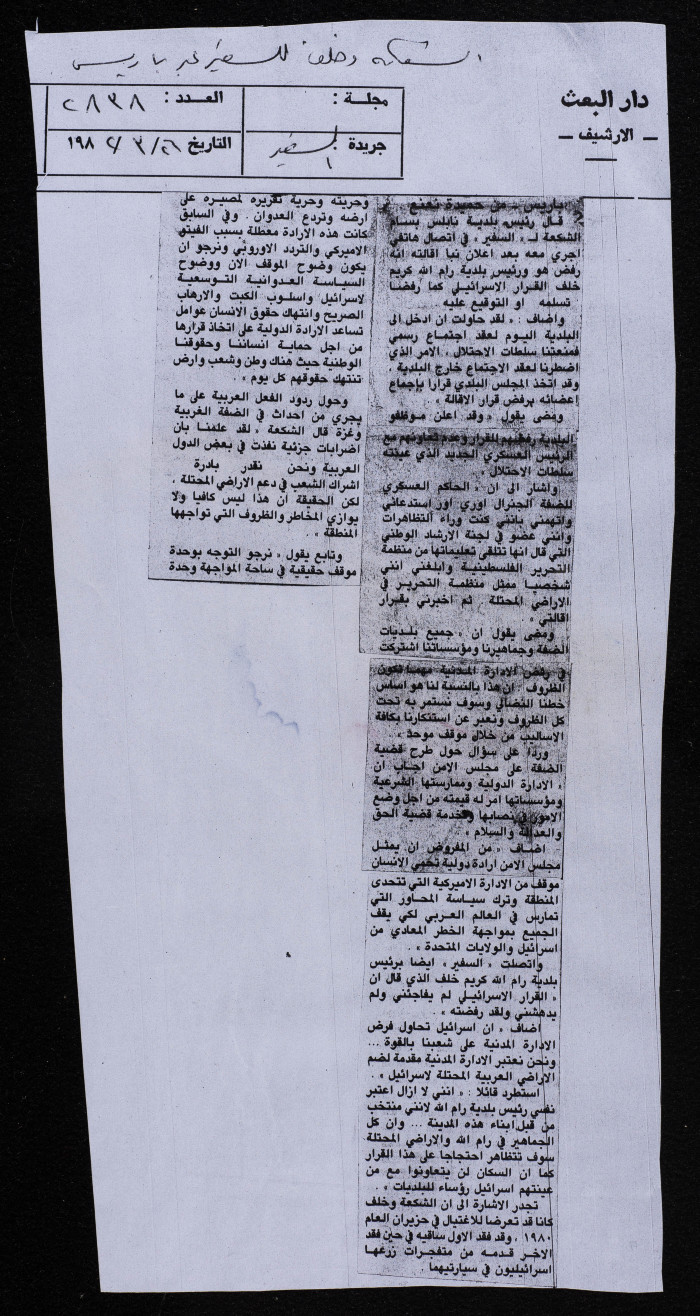 الشكعة وخلف للسفير عبر باريس
دار البعث
— الارشيف —
مجلة :
العدد : ٢٨٣٨
جريدة : السفير
التاريخ ٢٦/٣/١٩٨٢
باريس - من حميدة نعنع
قال رئيس بلدية نابلس بسام
الشكعة لـ « السفير » في اتصال هاتفي
اجري معه بعد اعلان نبا اقالته انه
رفض هو ورئيس بلدية رام الله كريم
خلف القرار الاسرائيلي كما رفضا
تسلمه او التوقيع عليه .
واضاف : « لقد حاولت ان ادخل الى
البلدية اليوم لعقد اجتماع رسمي
فمنعتنا سلطات الاحتلال ، الامر الذي
اضطرنا لعقد الاجتماع خارج البلدية ،
وقد اتخذ المجلس البلدي قرارا بإجماع
اعضائه برفض قرار الاقالة » .
ومضى يقول « وقد اعلن موظفو
البلدية رفضهم للقرار وعدم تعاونهم مع
الرئيس العسكري الجديد الذي عينته
سلطات الاحتلال »
واشار الى ان « الحاكم العسكري
للضفة الجنرال اوري اور استدعاني
واتهمني بانني كنت وراء التظاهرات
وانني عضو في لجنة الارشاد الوطني
التي قال انها تتلقى تعليماتها من منظمة
التحرير الفلسطينية وابلغني انني
شخصيا ممثل منظمة التحرير في
الاراضي المحتلة ثم اخبرني بقرار
اقالتي »
ومضى يقول ان « جميع بلديات
الضفة وجماهيرنا ومؤسساتنا اشتركت
في رفض الادارة المدنية مهما تكون
الظروف . ان هذا بالنسبة لنا هو اساس
خطنا النضالي وسوف نستمر به تحت
كل الظروف ونعبر عن استنكارنا بكافة
الاساليب من خلال موقف موحد »
وردا على سؤال حول طرح قضية
الضفة على مجلس الامن اجاب ان
« الادارة الدولية وممارستها الشرعية
ومؤسساتها امر له قيمته من اجل وضع
الامور في نصابها وخدمة قضية الحق
والعدالة والسلام »
اضاف « من المفروض ان يمثل
مجلس الامن ارادة دولية تحمي الانسان
وحريته وحرية تقريره لمصيره على
ارضه وتردع العدوان . وفي السابق
كانت هذه الارادة معطلة بسبب الفيتو
الاميركي والتردد الاوروبي ونرجو ان
يكون وضوح الموقف الان ووضوح
السياسة العدوانية التوسعية
لاسرائيل واسلوب الكبت والارهاب
الصريح وانتهاك حقوق الانسان عوامل
تساعد الارادة الدولية على اتخاذ قرارها
من اجل حماية انساننا وحقوقنا
الوطنية حيث هناك وطن وشعب وارض
تنتهك حقوقهم كل يوم » .
وحول ردود الفعل العربية على ما
يجري من احداث في الضفة الغربية
وغزة قال الشكعة « لقد علمنا بان
اضرابات جزئية نفذت في بعض الدول
العربية ونحن نقدر بادرة
اشراك الشعب في دعم الاراضي المحتلة ،
لكن الحقيقة ان هذا ليس كافيا ولا
يوازي المخاطر والظروف التي تواجهها
المنطقة » .
وتابع يقول « نرجو التوجه بوحدة
موقف حقيقية في ساحة المواجهة وحدة
موقف من الادارة الاميركية التي تتحدى
المنطقة وترك سياسة المحاور التي
تمارس في العالم العربي لكي يقف
الجميع بمواجهة الخطر المعادي من
اسرائيل والولايات المتحدة » .
واتصلت « السفير » ايضا برئيس
بلدية رام الله كريم خلف الذي قال ان
« القرار الاسرائيلي لم يفاجئني ولم
يدهشني ولقد رفضته » .
اضاف « ان اسرائيل تحاول فرض
الادارة المدنية على شعبنا بالقوة ...
ونحن نعتبر الادارة المدنية مقدمة لضم
الاراضي العربية المحتلة لاسرائيل » .
استطرد قائلا : « انني لا ازال اعتبر
نفسي رئيس بلدية رام الله لانني منتخب
من قبل ابناء هذه المدينة ... وان كل
الجماهير في رام الله والاراضي المحتلة
سوف تتظاهر احتجاجا على هذا القرار
كما ان السكان لن يتعاونوا مع من
عينتهم اسرائيل رؤساء للبلديات » .
تجدر الاشارة الى ان الشكعة وخلف
كانا قد تعرضا للاغتيال في حزيران العام
١٩٨٠ ، وقد فقد الاول ساقيه في حين فقد
الاخر قدمه من متفجرات زرعها
اسرائيليون في سيارتيهما .